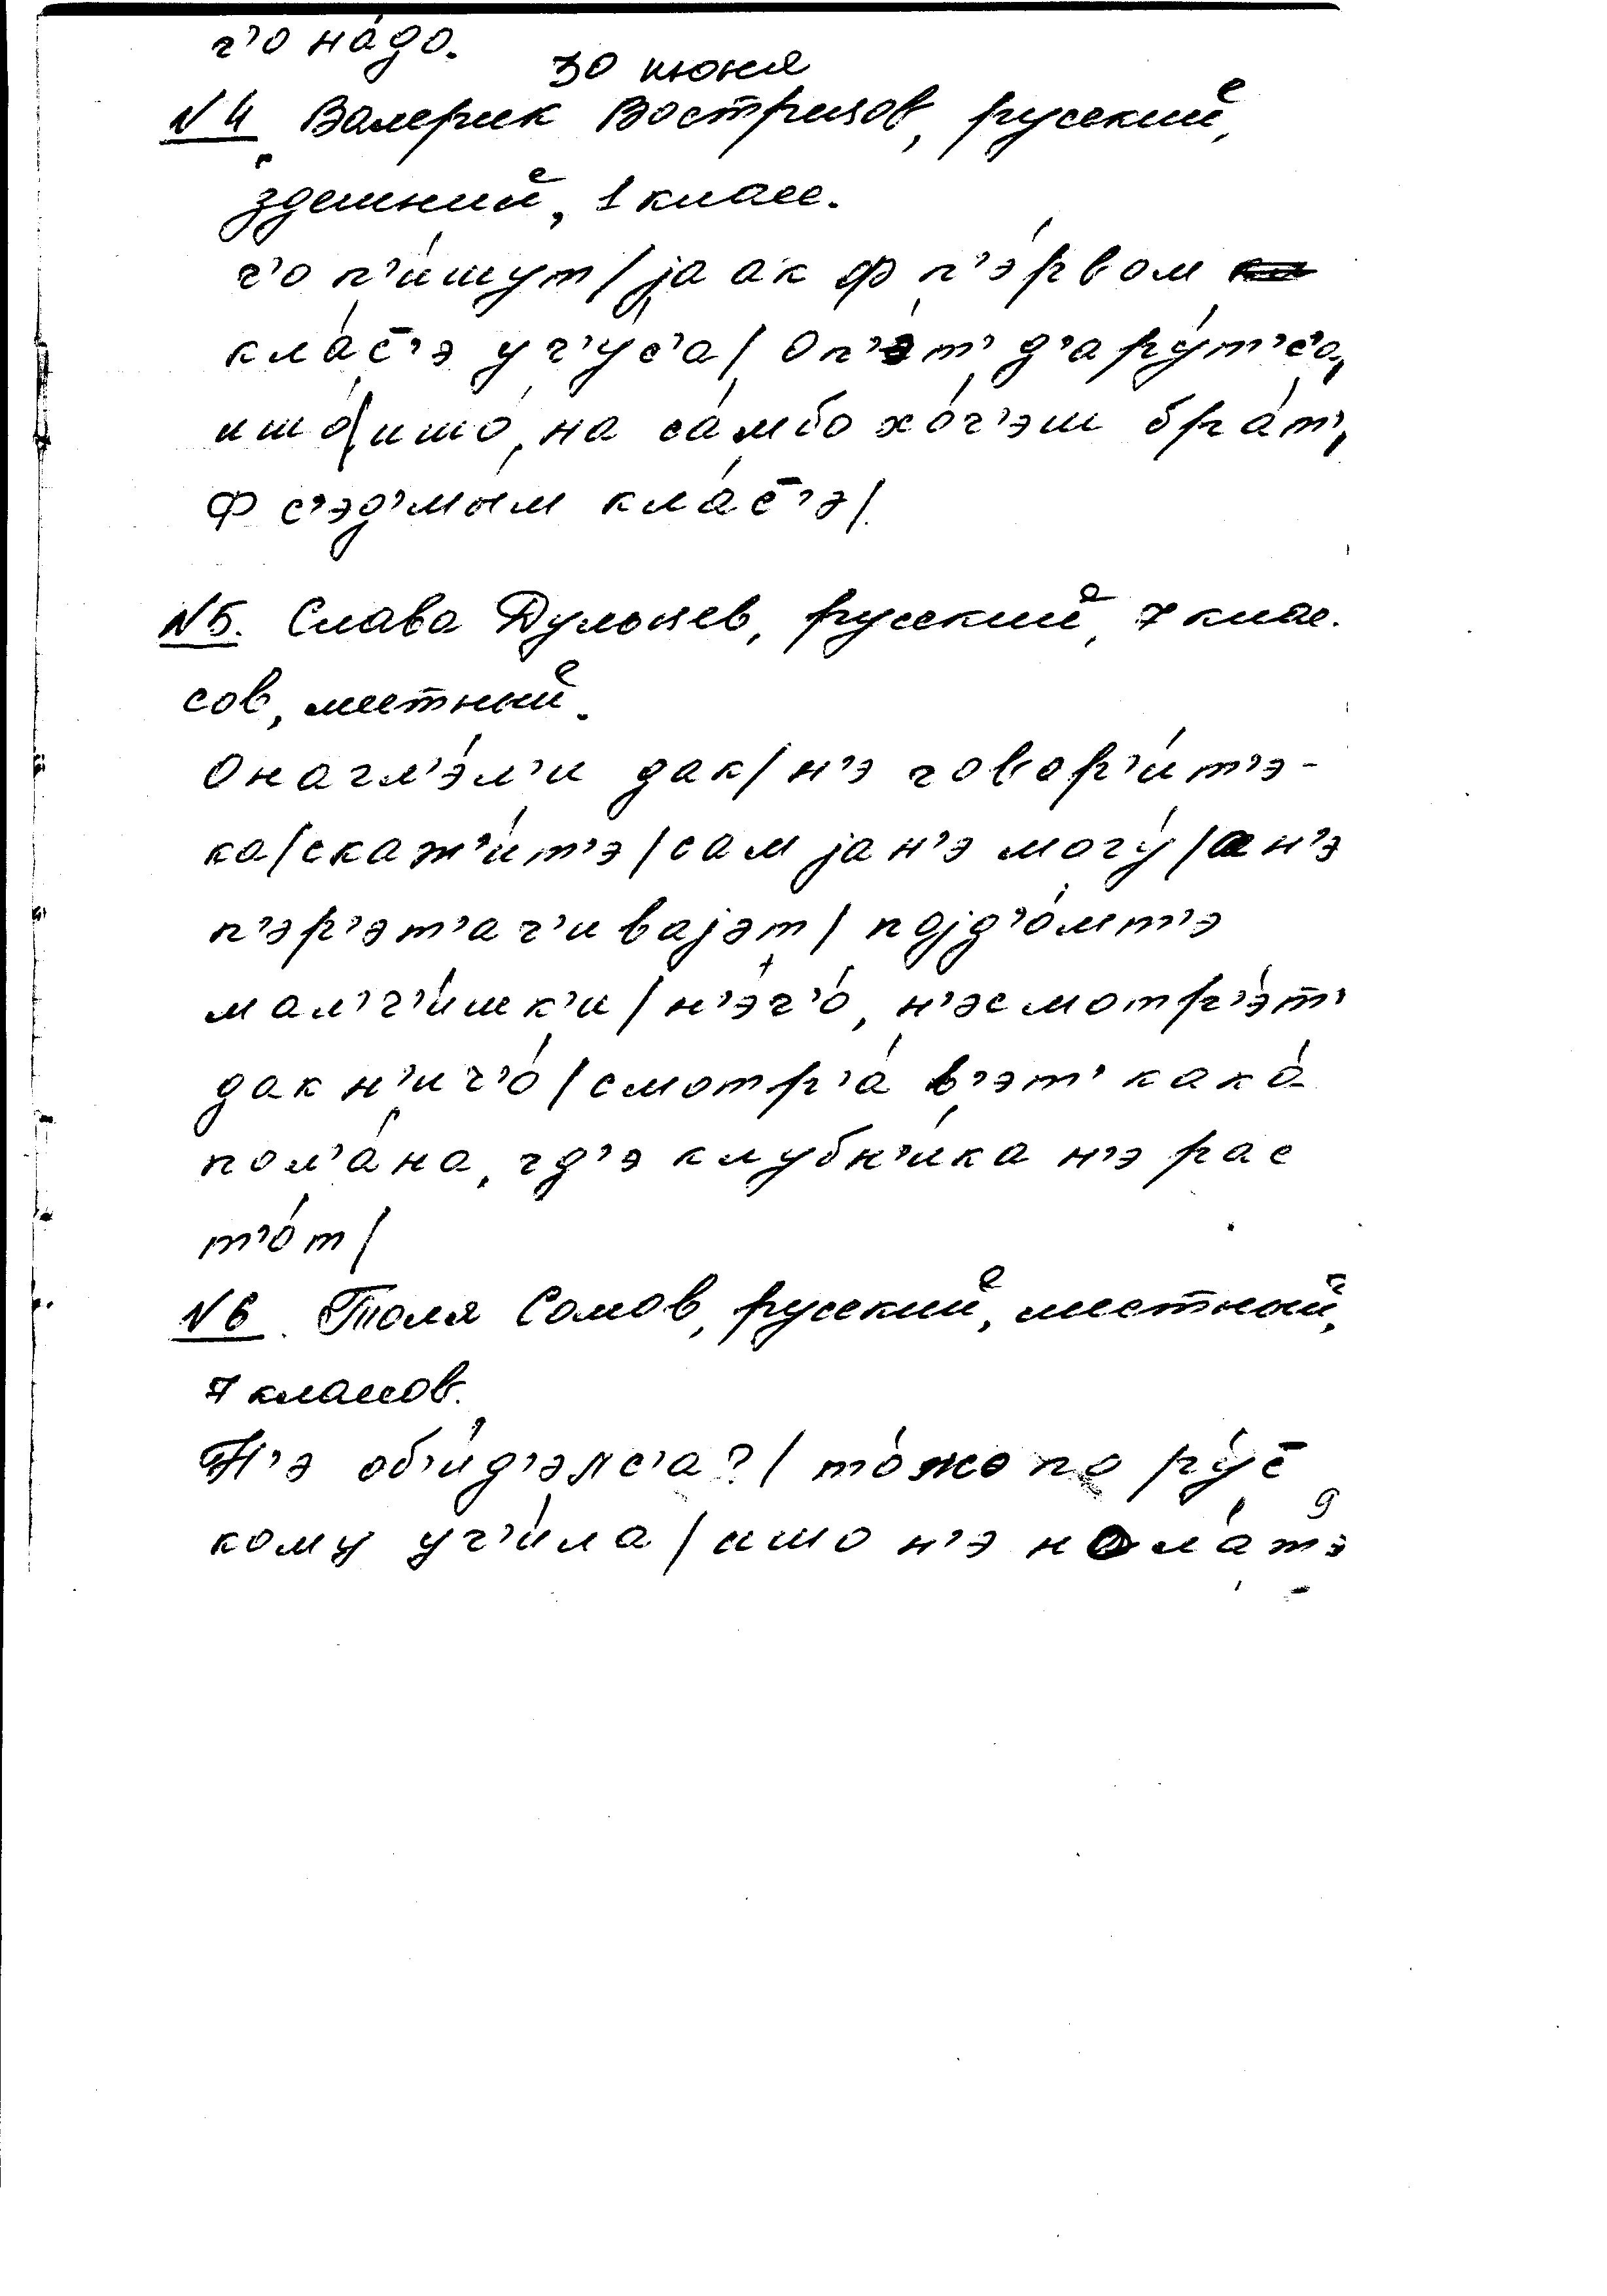 ч’о на́до.
30 июня
№ 4 Валерик Востриков, русский,
здешний, 1 класс.
ч’о п’и́шут / jа ак ф п’э́рвом
кла́с̄’э уч’у́с’а / Оп’э́т’ д’ару́т’с’а,
ишо́ / ишо́, на са́мбо хо́ч’эш бра́т’,
Ф с’эд’мы́м кла́с̄’э /.
№ 5. Слава Дульцев, русский, 7 клас.
сов, местный.
Онагл’э́л’и дак / н’э говор’и́т’э-
ка / скаж’и́т’э / сам jа н’э могу́ / а н’э
п’эр’эт’а́г’иваjэт / поjд’о́мт’э
мал’ч’и́шк’и / н’эч’о́, н’эсмотр’э́т’
дак н’ич’о́ / смотр’а́ в’эт’ кака́
пол’а́на, гд’э клубн’и́ка н’э рас
т’о́т /
№ 6. Толя Сомов, русский, местный,
7 классов.
Н’э об’и́д’элс’а? / то́жо по ру́с̄
кому уч’и́ла / ишо н’э
9